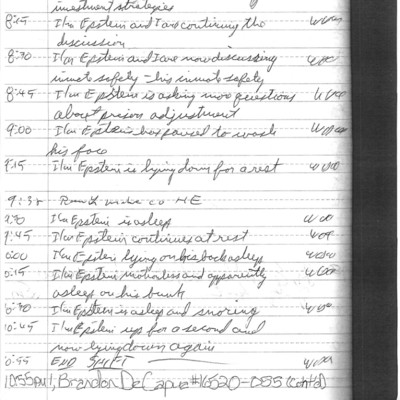 investment strategies
8:15 I/m Epstein and I are continuing the
discussion
8:30 I/m Epstein and I are now discussing
inmate safety - his inmate safety
8:45 I/m Epstein is asking more questions
about prison adjustment
9:00 I/m Epstein has paused to wash
his face
9:15 I/m Epstein is lying down for a rest
9:30
9:30 I/m Epstein is asleep
9:45 I/m Epstein continues at rest
0:00 I/m Epstein lying on his back asleep
0:15 I/m Epstein motionless and apparently
asleep on his bunk
0:30 I/m Epstein is asleep and snoring
0:45 I/m Epstein up for a second and
now lying down again
0:55 END SHIFT
10:55pm I, Brandon DeCapua #16520-085 (Cont'd)